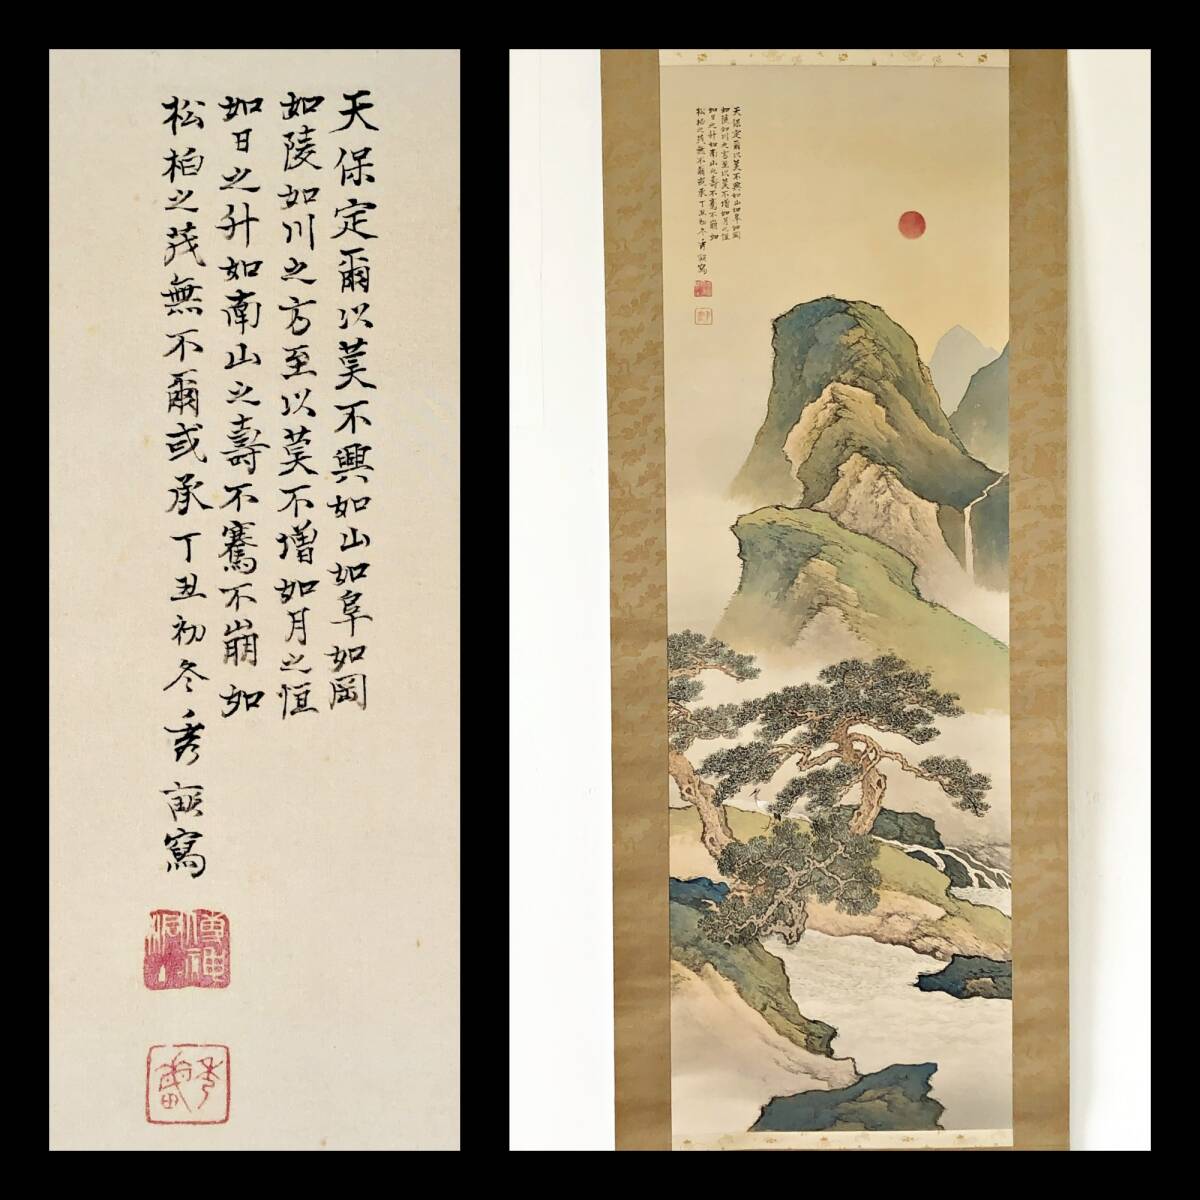 天保定爾以莫不興如山如阜如岡
如陵如川之方至以莫不增如月之恒
如日之升如南山之壽不騫不崩如
松柏之茂無不爾或承丁丑初冬秀畝寫
天保定爾以莫不興如山如阜如岡
如陵如川之方至以莫不增如月之恒
如日之升如南山之壽不騫不崩如
松柏之茂無不爾或承丁丑初冬秀畝寫